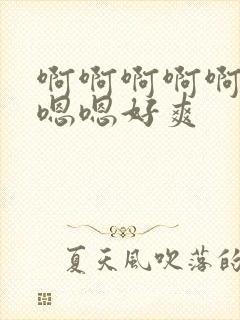 啊啊啊啊啊
嗯嗯好爽
夏天风吹落的